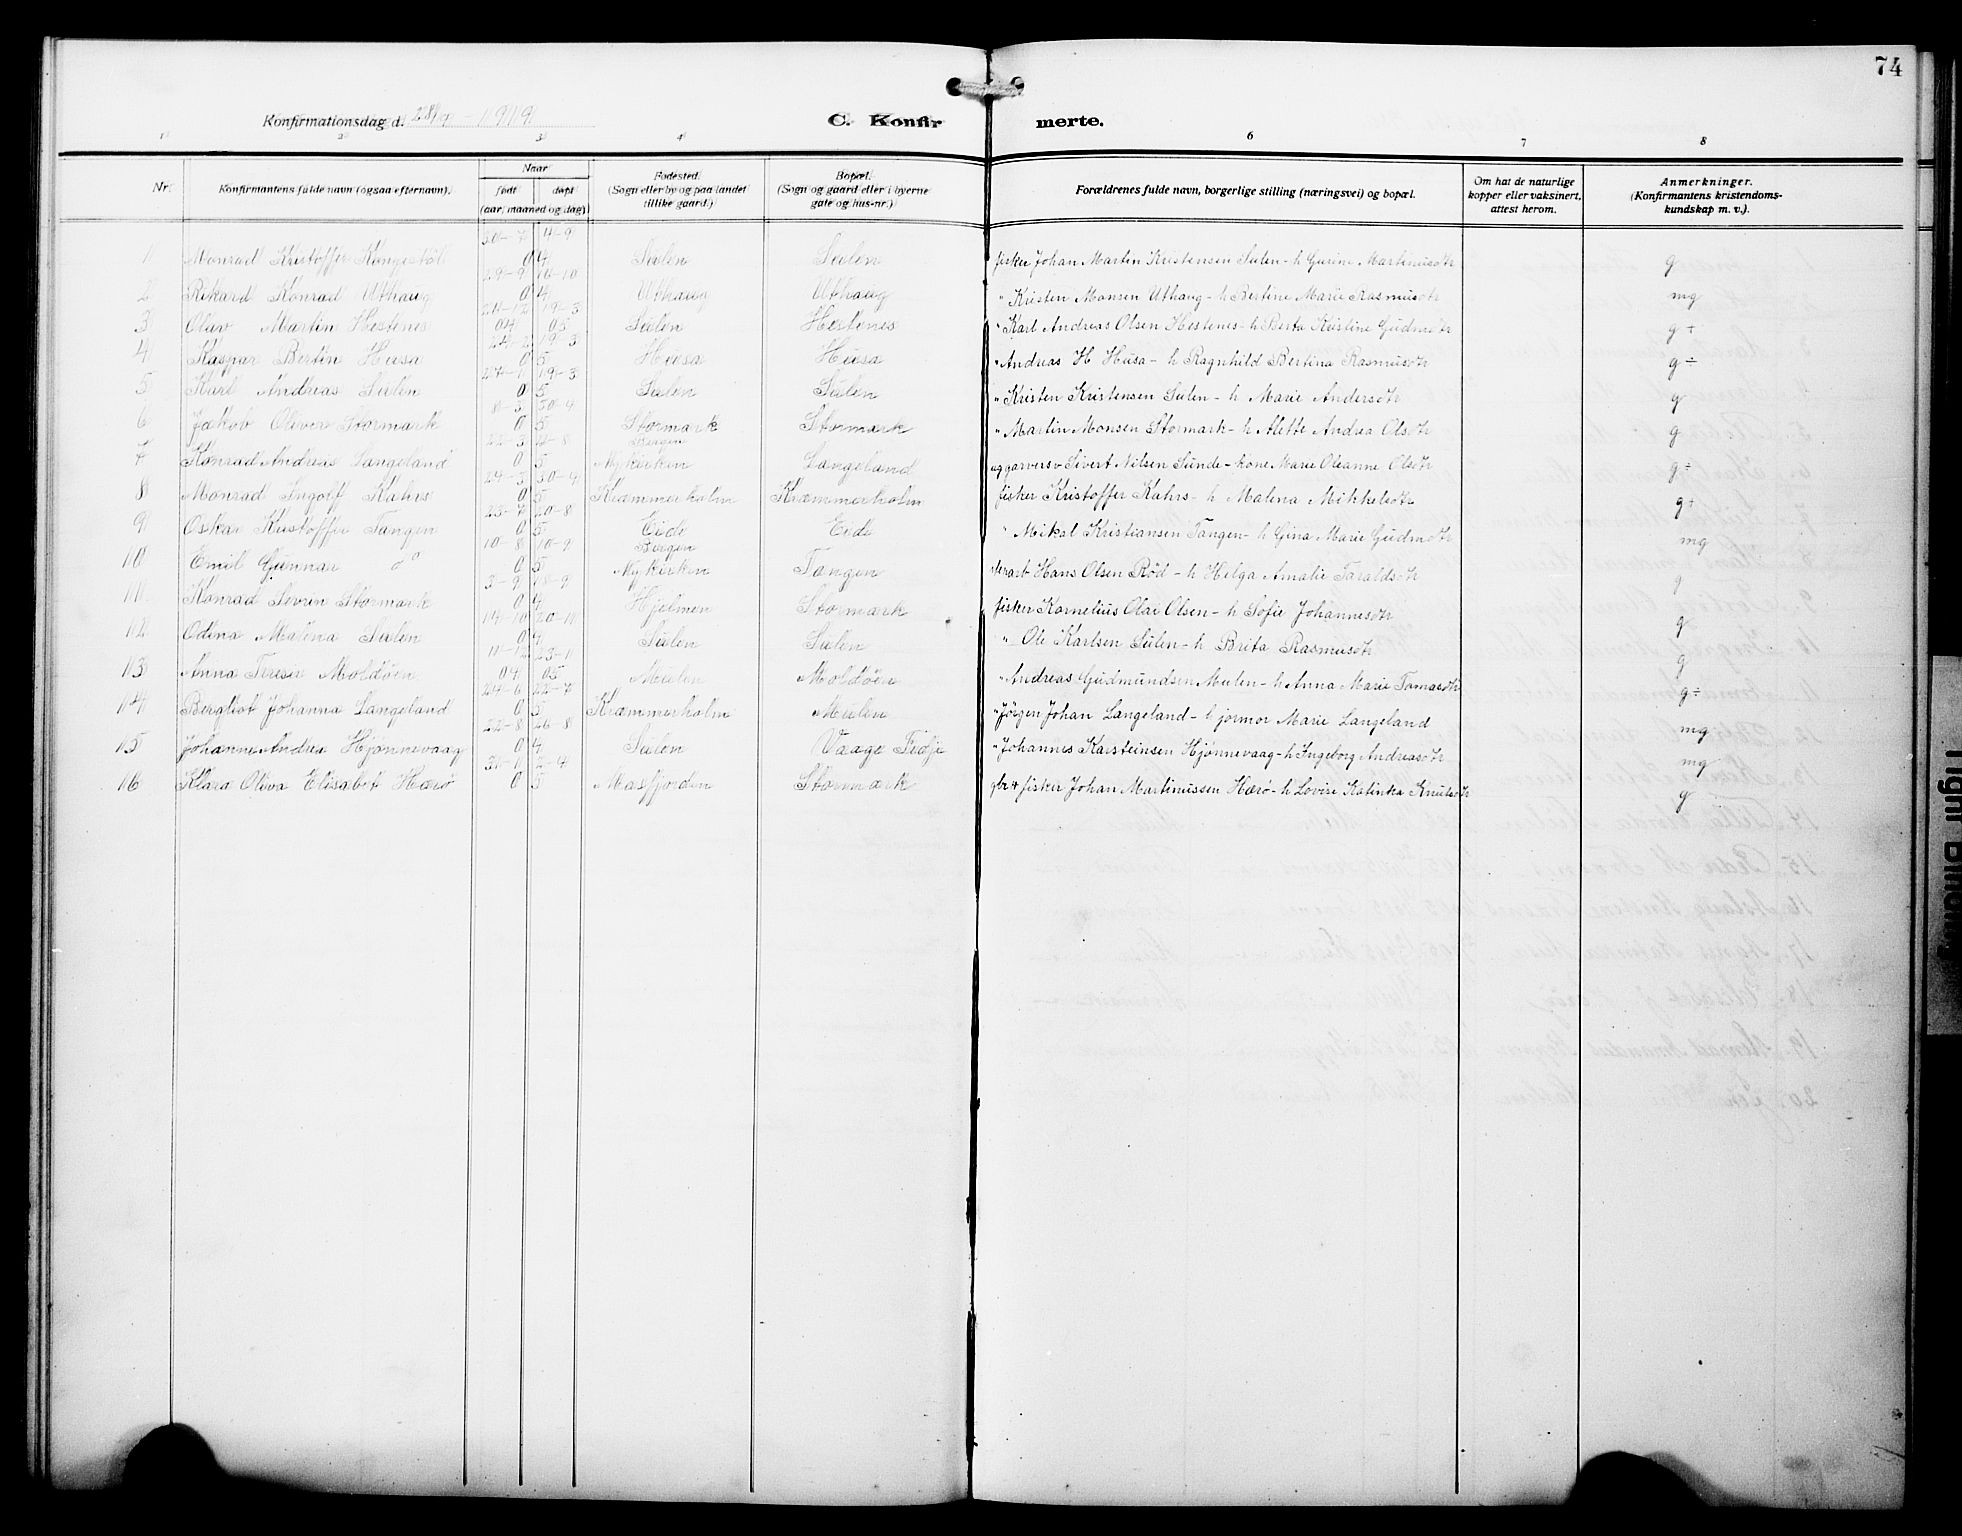 74
Konfirmationsdag d. 28/9 - 1919
C. Konfirmerte.
1 2 3 4 6 7 8
Nr.
Konfirmantens fulde navn (ogsaa efternavn).
Naar
født
døpt
(aar, maaned og dag)
Fødested.
(Sogn eller by og paa landet
tillike gaard.)
Bopæl.
(Sogn og gaard eller i byerne
gate og hus-nr.)
Forældrenes fulde navn, borgerlige stilling (næringsvei) og bopæl.
Om hat de naturlige
kopper eller vaksinert,
attest herom.
Anmerkninger.
(Konfirmantens kristendoms-
kundskap m. v.).
1 Monrad Kristoffer 04 4-9 Sulen Sulen fisker Johan Martin Kristensen Sulen - h Gurine Martinusdtr g
2 Rikard Konrad Uthaug 29-9 04 10-10 Uthaug Uthaug " Kristen Monsen Uthaug - h Bertine Marie Rasmusdtr mg
3 Olav Martin Hestenes 04 19-3 05 Sulen Hestenes " Karl Andreas Olsen Hestenes - h Berta Kristine Gudmdtr g ÷
4 Kaspar Bertin Husa 05 19-3 Husa Husa " Andreas H Husa - h Ragnhild Bertina Rasmusdtr g ÷
5 Karl Andreas Sulen 05 19-3 Sulen Sulen " Kristen Kristensen Sulen - h Marie Andersdtr g
6 Jakob Oliver Stormark 8-3 05 30-4 Stormark Stormark " Martin Monsen Stormark - h Alette Andrea Olsdtr g
7 Konrad Andreas Langeland 22-3 05 Bergen Nykirken Langeland ug garversv Sivert Nilsen Sunde - kone Marie Oleanne Olsdtr g ÷
8 Monrad Ingolf Kahrs 24-3 05 30-4 Kræmmerholm Kræmmerholm fisker Kristoffer Kahrs - h Malena Mikkelsdtr g+
9 Oskar Kristoffer Tangen 23-7 05 20-8 Eide Eide " Mikal Kristiansen Tangen - h Gina Marie Gudmdtr mg
10 Emil Gunnar do 10-8 05 10-9 Bergen Nykirken Tangen Hans Olsen Rød - h Helga Amalie Taraldsdtr g
11 Konrad Severin Stormark 3-9 04 18-9 Hjelmen Stormark fisker Kornelius Olai Olsen - h Sofie Johannesdtr g
12 Odina Malena Sulen 14-10 04 20-11 Sulen Sulen " Ole Karlsen Sulen - h Brita Rasmusdtr g
13 Anna Teresie Moldøen 11-12 04 23-1 05 Mulen Moldøen " Andreas Gudmundsen Mulen - h Anna Marie Tomasdtr g ÷
14 Bergliot Johanna Langeland 24-6 05 22-7 Kræmmerholm Mulen " Jørgen Johan Langeland - Marie Langeland mg
15 Johanne Andrea Hjønnevaag 22-8 04 26-8 Sulen Vaage Fedje " Johannes Karsteinsen Hjønnevaag - h Ingeborg Andreasdtr mg
16 Klara Oliva Elisabet Hærø 05 2-4 Masfjorden Stormark gbr + fisker Johan Martinussen Hærø - h Lovise Katinka Knutsdtr g
Tight Binding